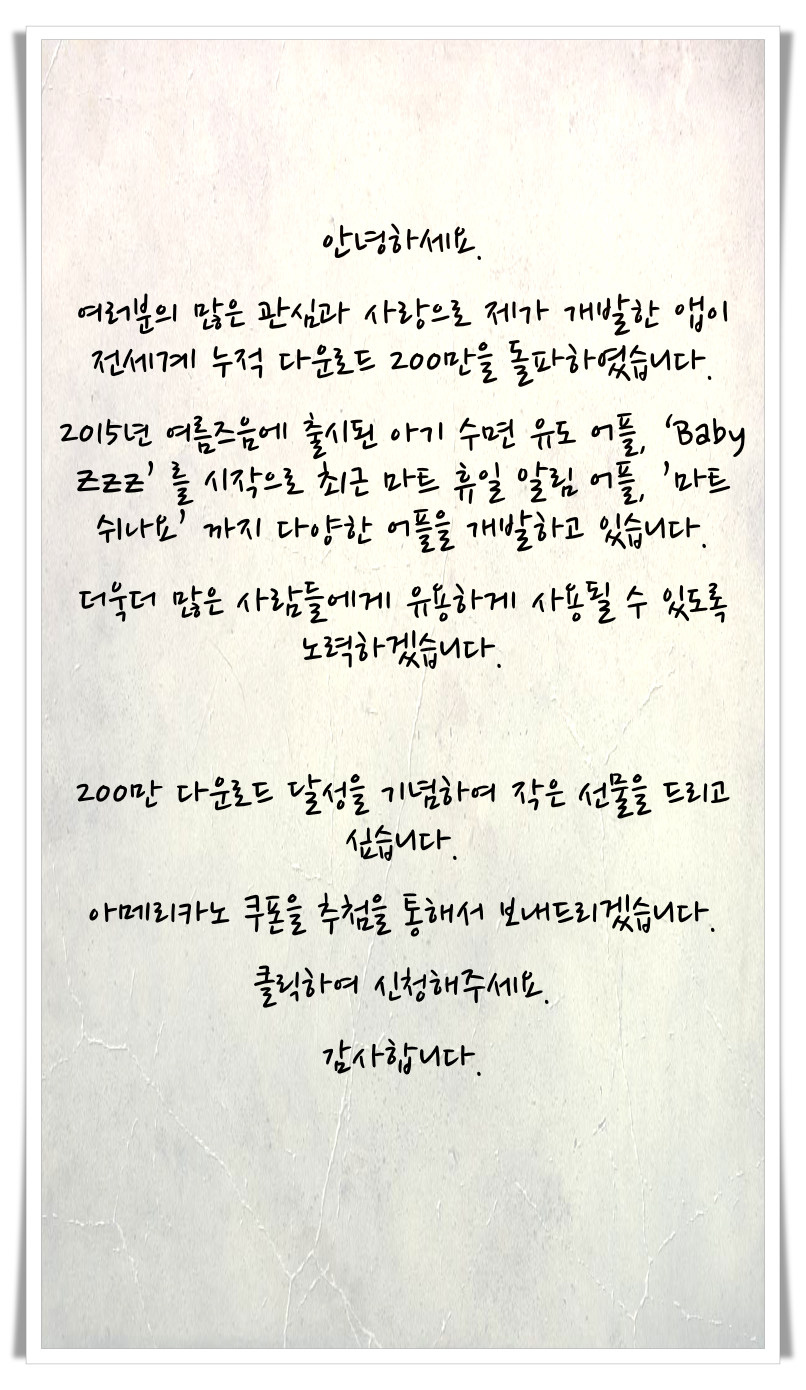 안녕하세요.
여러분의 많은 관심과 사랑으로 제가 개발한 앱이
전세계 누적 다운로드 200만을 돌파하였습니다.
2015년 여름즈음에 출시된 아기 수면 유도 어플, ‘Baby
zzz’ 를 시작으로 최근 마트 휴일 알림 어플, ’마트
쉬나요’ 까지 다양한 어플을 개발하고 있습니다.
더욱더 많은 사람들에게 유용하게 사용될 수 있도록
노력하겠습니다.
200만 다운로드 달성을 기념하여 작은 선물을 드리고
싶습니다.
아메리카노 쿠폰을 추첨을 통해서 보내드리겠습니다.
클릭하여 신청해주세요.
감사합니다.